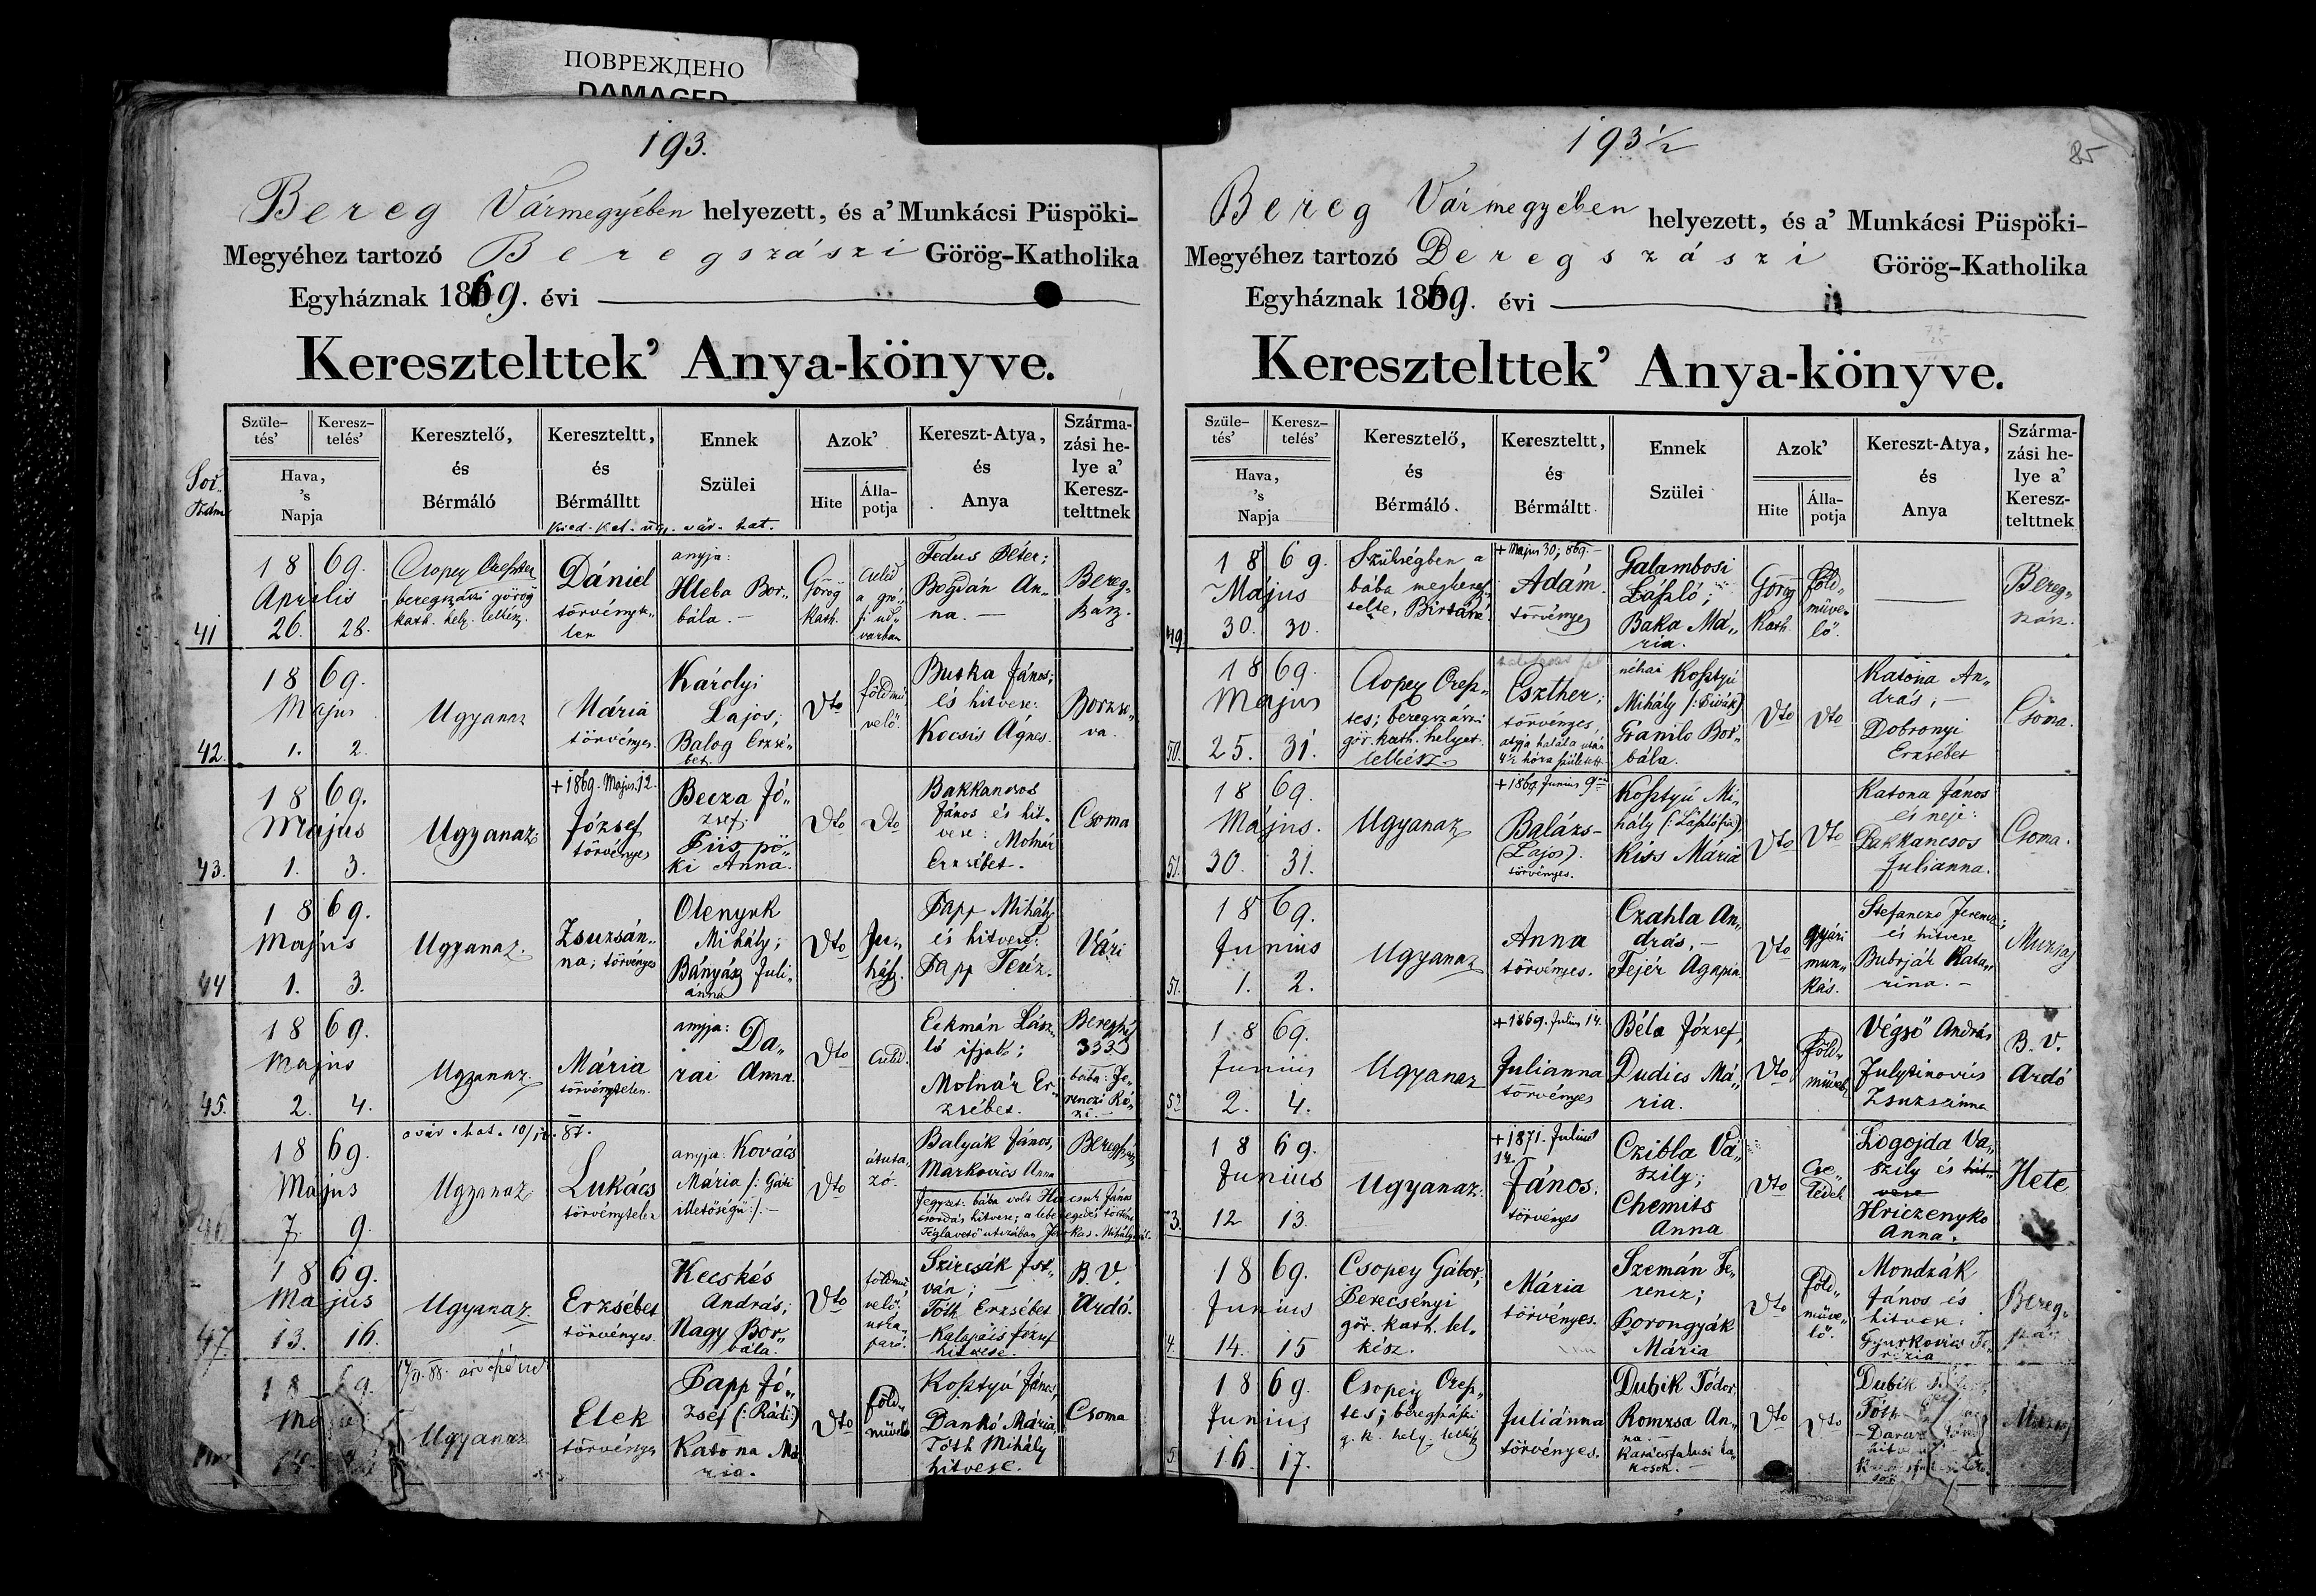 ПОВРЕЖДЕНО
DAMAGED
193.
Bereg Vármegyében helyezett, és a' Munkácsi Püspöki-
Megyéhez tartozó Beregszászi Görög-Katholika
Egyháznak 1869. évi
Keresztelttek' Anya-könyve.
Szüle-
tés'
Keresz-
telés'
Hava,
's
Napja
Keresztelő,
és
Bérmáló
Kereszteltt,
és
Bérmálltt
Ennek
Szülei
Azok'
Hite
Álla-
potja
Kereszt-Atya,
és
Anya
Szárma-
zási he-
lye a'
Keresz-
telttnek
41
18 69.
Aprilis
26. 28.
Csopey
beregszászi görög
kath. hely. lelkész.
Dániel
törvényte-
len
anyja:
Hleba Bor-
bála. -
Görög
Kath.
cseléd
a gró-
fi ud-
varban
Fedus Péter;
Bogdán An-
na. -
Bereg-
szász.
42.
18 69.
Majus
1. 2.
Ugyanaz
Mária
törvényes.
Károlyi
Lajos;
Balog Erzsé-
bet.
Dto
földmű-
velő.
Butka János;
és hitvese:
Kocsis Ágnes.
Borzso-
va.
43.
18 69.
Majus
1. 3.
Ugyanaz
+1869. Majus 12.
József
törvényes
Becza Jó-
zsef;
Püspö-
ki Anna.
Dto
Dto
Bakkancsos
János és hit-
vese: Molnár
Erzsébet.
Csoma
44
18 69.
Majus
1. 3.
Ugyanaz.
Zsuzsán-
na; törvényes
Olenyuk
Mihály;
Bányász Juli-
ánna
Dto
Ju-
hász.
Papp Mihály
és hitvese:
Papp Teréz.
Vári
45.
18 69.
Majus
2. 4.
Ugyanaz.
Mária
törvénytelen.
anyja: Da-
rai Anna.
Dto
cseléd.
Eckmán Lász-
ló ifjabb;
Molnár Er-
zsébet.
333
18 69.
Majus
7. 9.
Ugyanaz
Lukács
törvénytelen
anyja: Kovács
Mária /: Gáti
illetőségű:/. -
Dto
átuta-
zó.
Balyák János,
Markovics Anna
Beregszász
47.
18 69.
Majus
13. 16.
Ugyanaz
Erzsébet
törvényes.
Kecskés
András;
Nagy Bor-
bála.
Dto
földmű-
velő;
Szircsák Ist-
ván;
Tóth Erzsébet
Kalapáts József
hitvese.
B. V.
Ardó.
Ugyanaz
Elek
törvényes
Papp Jó-
zsef (: Rádi:)
Katona Má-
ria.
Dto
föld-
művelő
Kosztyú János,
Dankó Mária,
Tóth Mihály
hitvese.
Csoma
193 1/2
85
Bereg Vármegyében helyezett, és a' Munkácsi Püspöki-
Megyéhez tartozó Beregszászi Görög-Katholika
Egyháznak 1869. évi
Keresztelttek' Anya-könyve.
Szüle-
tés'
Keresz-
telés'
Hava,
's
Napja
Keresztelő,
és
Bérmáló.
Kereszteltt,
és
Bérmáltt
Ennek
Szülei
Azok'
Hite
Álla-
potja
Kereszt-Atya,
és
Anya
Szárma-
zási he-
lye a'
Keresz-
telttnek
49
18 69.
Május
30. 30.
Szükségben a
bába megkeresz-
telte,
+ Május 30; 869. -
Adám.
törvényes
Galambosi
László;
Baka Má-
ria.
Görög
Kath.
föld-
műve-
lő.
Bereg-
szász.
50.
18 69.
Majus
25. 31.
Csopey Oresz-
tes; beregszászi
gör. kath. helyet.
lelkész
Eszther;
törvényes
atyja halála után
4 1/2 hóra született
néhai Kosztyú
Mihály
Granilo Bor-
bála.
Dto
Dto
Katona An-
drás; -
Dobronyi
Erzsébet
Csoma.
51.
18 69.
Május.
30. 31.
Ugyanaz
+1869. Junius 9
Balázs-
(Lajos).
törvényes.
Kosztyú Mi-
hály (: László fia:)
Kiss Mária
Dto
Dto
Katona János
és neje:
Bakkancsos
Julianna.
Csoma.
51.
18 69.
Junius
1. 2.
Ugyanaz
Anna
törvényes.
Czahla An-
drás, -
Fejér Agapia
Dto
gyári
mun-
kás.
Stefanczo Ferencz;
és hitvese
Bubrják Kata-
rina. -
Muzsaj
52
18 69.
Junius
2. 4.
Ugyanaz
+1869. Julius 14.
Julianna
törvényes
Béla József,
Dudics Má-
ria.
Dto
föld-
művelő
Végső András
Zsuzsánna
B. V.
Ardó
3.
18 69.
Junius
12 13.
Ugyanaz.
+1871. Julius
14.
János.
törvényes
Czibla Va-
szily;
Chemits
Anna
Dto
Cse-
lédek
Logojda Va-
szily és hit-
vese
Hriczenyko
Anna.
Hete
4.
18 69.
Junius
14. 15
Csopey Gábor,
Berecsényi
gör. kath. lel-
kész.
Mária
törvényes.
Szemán Fe-
rencz;
Borongyák
Mária
Dto
föld-
műve-
lő.
Mondzák
János és
hitvese:
Gyurkovics Te-
rézia
Bereg-
szász
5.
18 69.
Junius
16. 17.
Csopey Oresz-
tes; beregszászi
g. k. hely. lelkész
Juliánna
törvényes.
Dubik Tódor
Romzsa An-
na. -
Karácsfalusi la-
kosok.
Dto
Dto
Dubik
Tóth